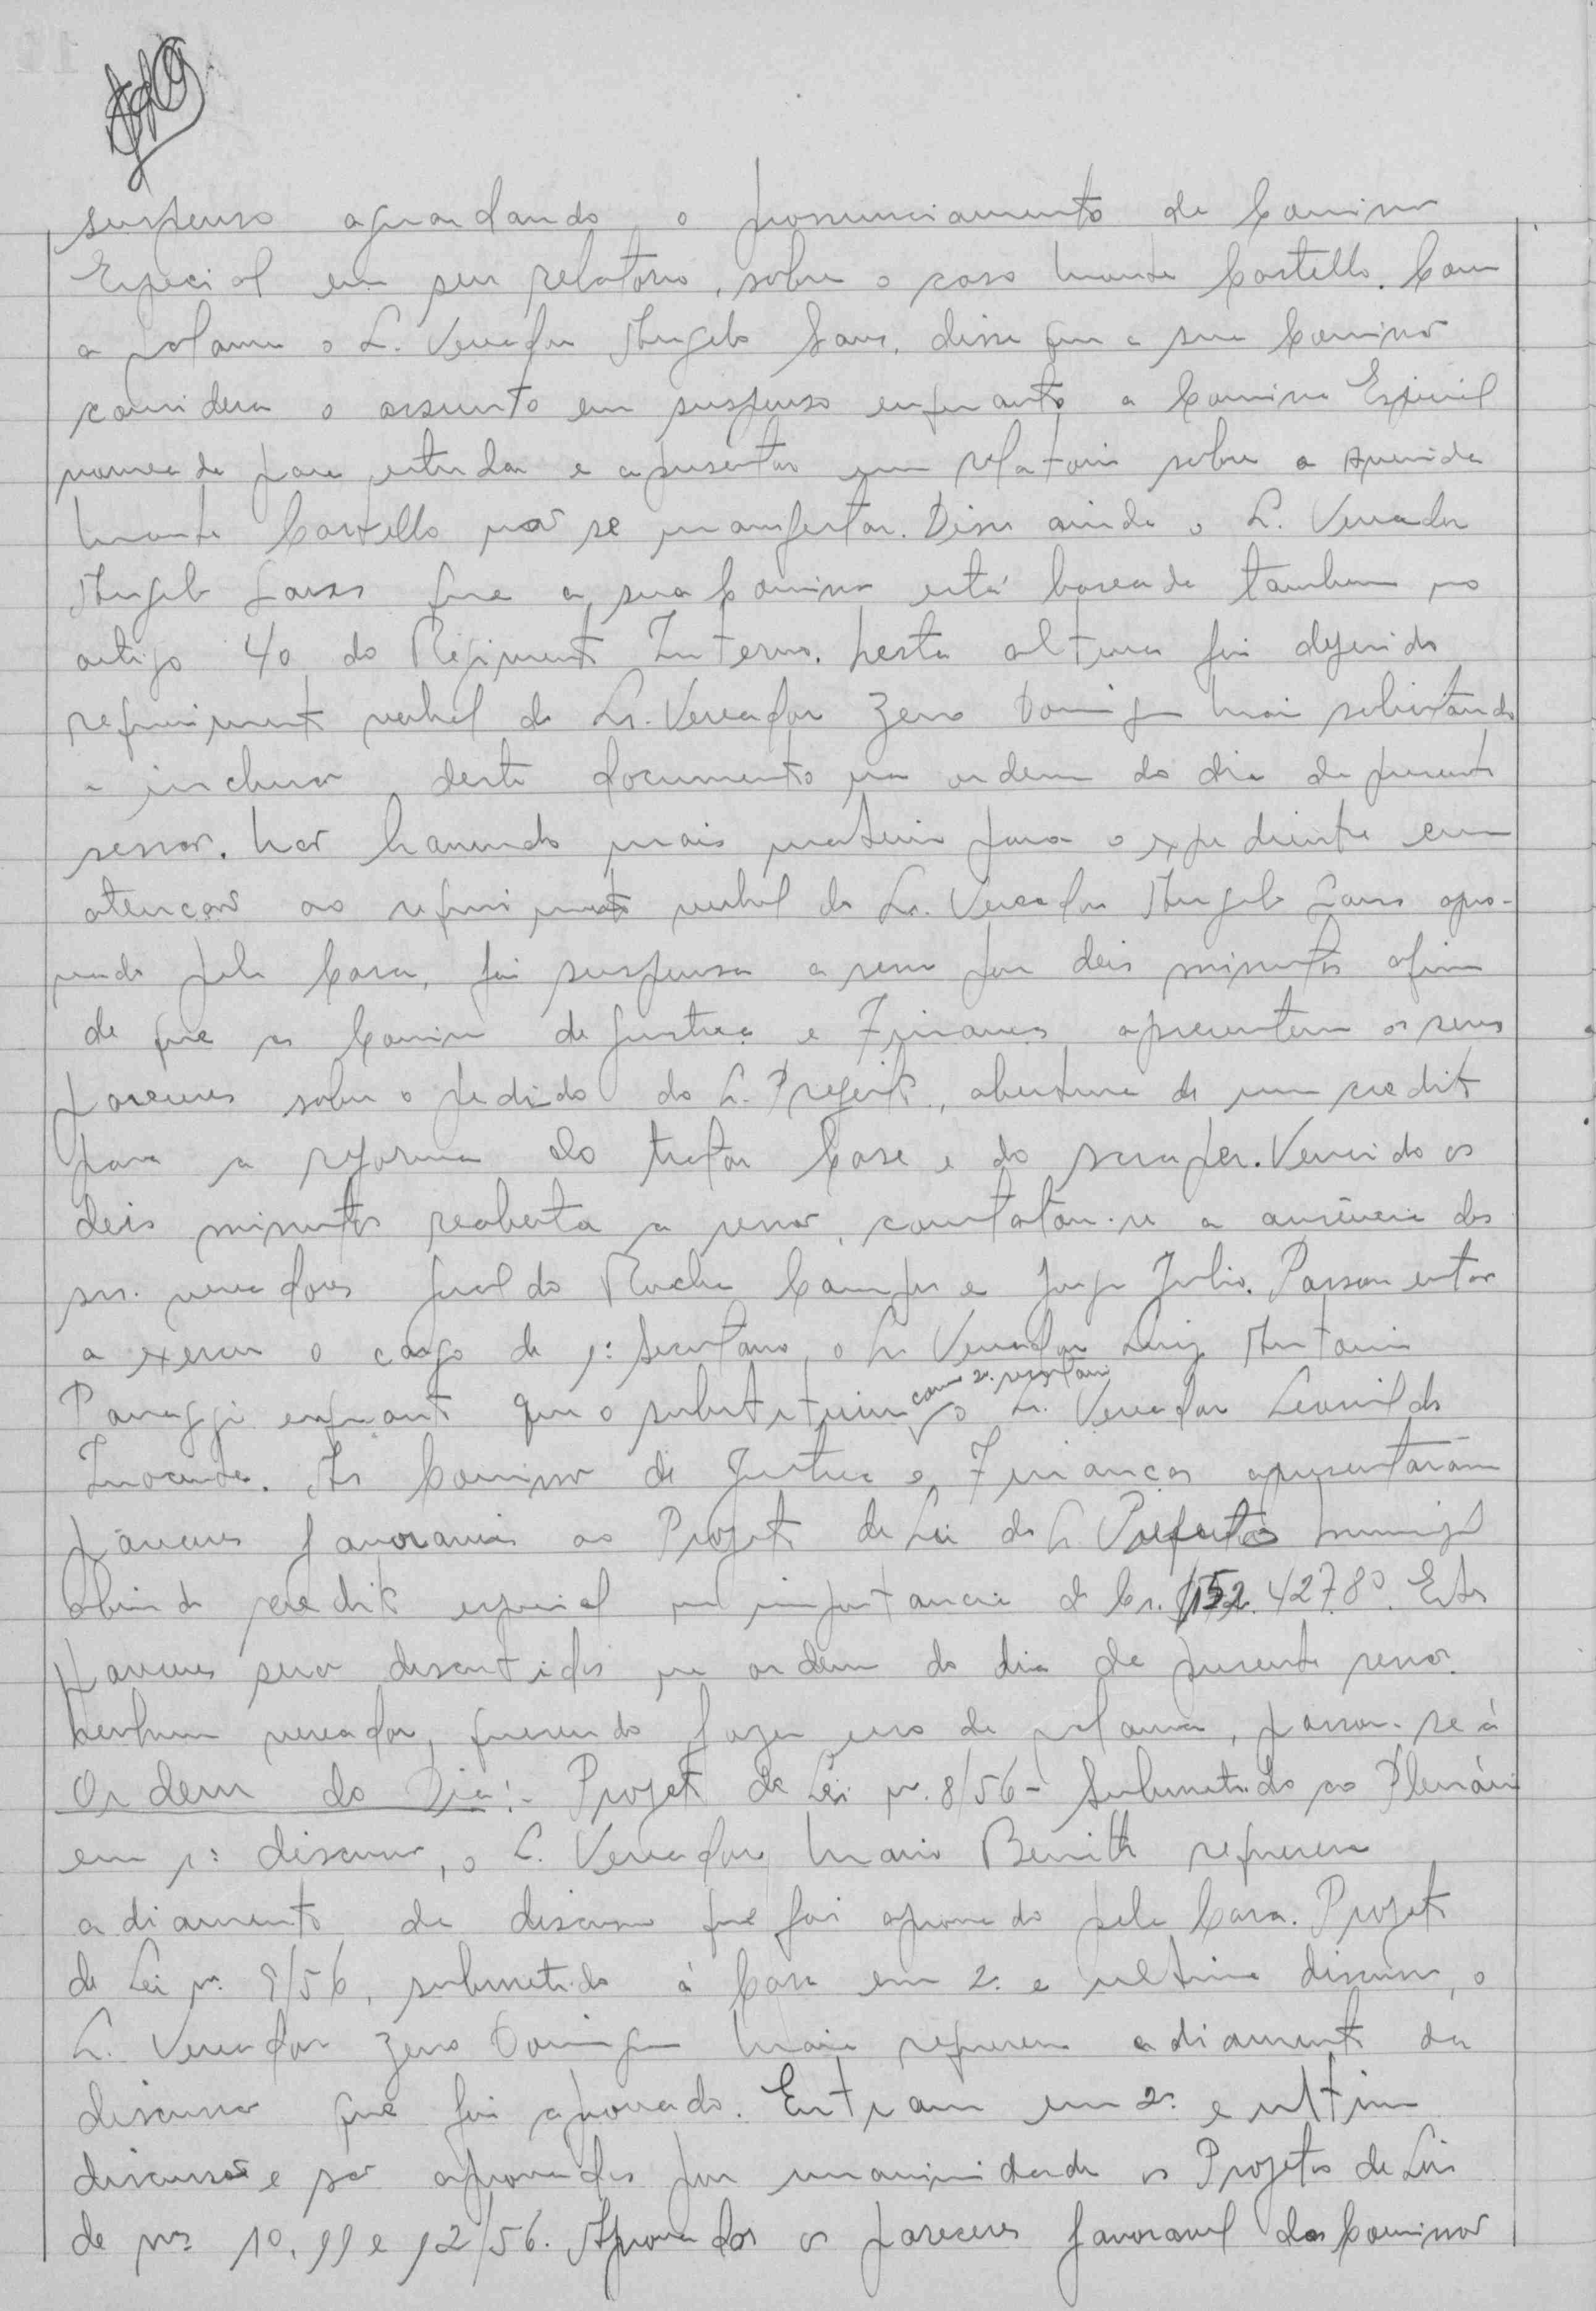 suspenso aguardando o pronunciamento da Comissão
Especial em seu relatorio, sobre o caso Monte Castello. Com
a palavra o Sr. Vereador Angelo disse que a sua Comissão
considera o assunto em suspenso enquanto a Comissão Especial
nomeada para estudar e apresentar um relatorio sobre a Avenida
Monte Castello não se manifestar. Disse ainda o Sr. Vereador
Angelo que a sua Comissão está baseada tambem no
artigo 40 do Regimento Interno. Nesta altura foi deferido
requerimento verbal do Sr. Vereador Zeno Domingues Maia solicitando
a inclusão deste documento na ordem do dia da presente
sessão. Não havendo mais materia para o expediente em
atenção ao requerimento verbal do Sr. Vereador Angelo apro-
vado pela Casa, foi suspensa a sessão por deis minutos afim
de que as Comissões de Justiça e Finanças apresentem os seus
pareceres sobre o pedido do Sr. Prefeito, abertura de um credito
para a reforma do trator Case e do scraper. Vencido os
deis minutos reaberta a sessão, constatou-se a ausência dos
srs. vereadores Geraldo Rocha Campos e Jorge Julio. Passou então
a exercer o cargo de 1º Secretario, o Sr. Vereador Luiz Antonio
Panaggi enquanto que o substituiu como 2º secretario o Sr. Vereador Leonildo
Inocente. As Comissões de Justiça e Finanças apresentaram
pareceres favoraveis ao Projeto de Lei do Sr. Prefeito Municipal
abrindo credito especial na importancia de Cr. 152.427,80. Estes
pareceres serão discutidos na ordem do dia da presente sessão.
Nenhum vereador, querendo fazer uso da palavra, passou-se à
Ordem do Dia:- Projeto de Lei nº 8/56 - Submetido ao Plenário
em 1ª discussão, o Sr. Vereador Mario requereu
adiamento da discussão que foi aprovado pela Casa. Projeto
de Lei nº 9/56, submetido á Casa em 2ª e ultima discussão, o
Sr. Vereador Zeno Domingues Maia requereu adiamento da
discussão que foi aprovado. Entram em 2ª e ultima
discussão e são aprovados por unanimidade os Projetos de Leis
de nºs 10, 11 e 12/56. Aprovados os pareceres favoravel das Comissões